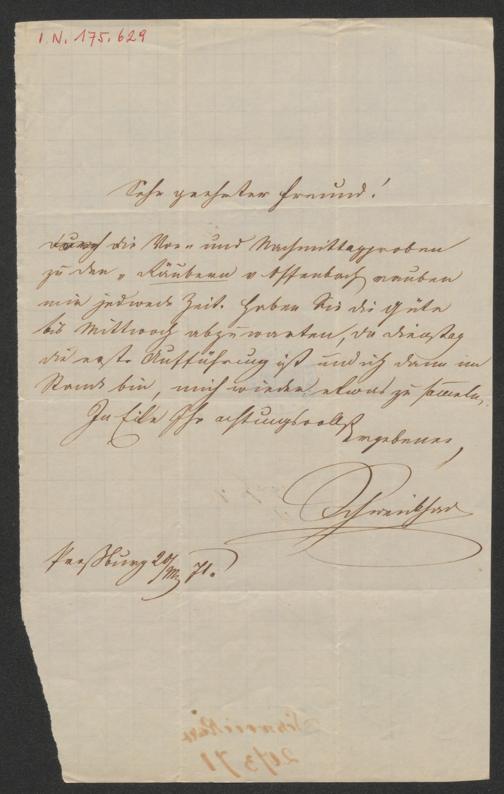 I.N. 175.629
Sehr geehrter Freund!
Durch die Vor- und Nachmittagproben
zu den „Räubern v Offenbach rauben
mir jedwede Zeit. Haben Sie die Güte
bis Mittwoch abzuwarten, da Dienstag
die erste Aufführung ist und ich dann im
Stande bin, mich wieder etwas zu sammeln.
In Eile Ihr achtungsvollst
Ergebener,
Pressburg 20/ 71.
20/3 71